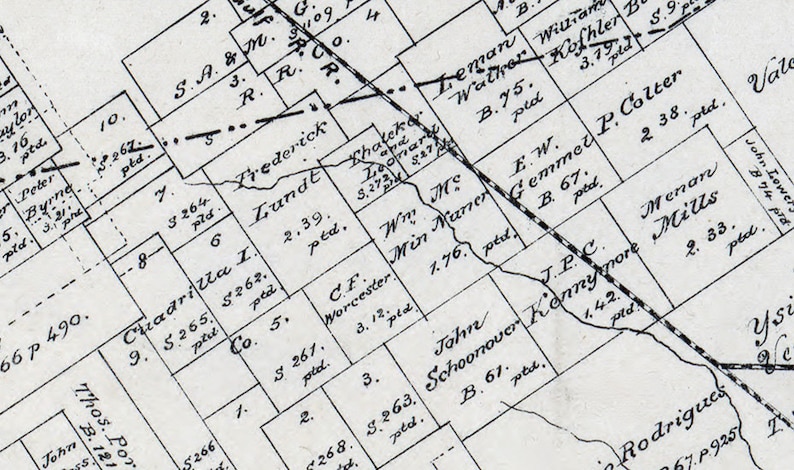 2.
S. A. &
M.
G.
R. Co.
R. R.
4
3.
R.
R.
5
10.
S. 267.
ptd.
Peter
Byrne
3. 21. ptd.
7
S 264.
ptd.
6
Quadrilla I.
S. 262.
ptd.
Co.
8
S 265.
ptd.
9.
5.
S 261.
ptd.
66 P 490.
Frederick
Lundt
2.39.
ptd.
Leman
Walker
B. 75.
ptd
William
Koehler
3.19. ptd
S. 9. ptd
P. Colter
2 38. ptd.
E. W.
Gemmel
B. 67.
ptd.
John Lowery
B 74 ptd
Menan
Mills
2. 33. ptd.
Wm. Mc
Min Nuner
1.76. ptd.
C. F.
Worcester
3. 12. ptd
J. P. C.
Kennymore
1.42. ptd.
John
Schoonover
B. 61. ptd.
1.
S 266
2.
S 268.
ptd.
3.
S. 263.
ptd.
Thos. Por
B. 121
John
Rodrigues
B 67. P. 925
Ysi
T.